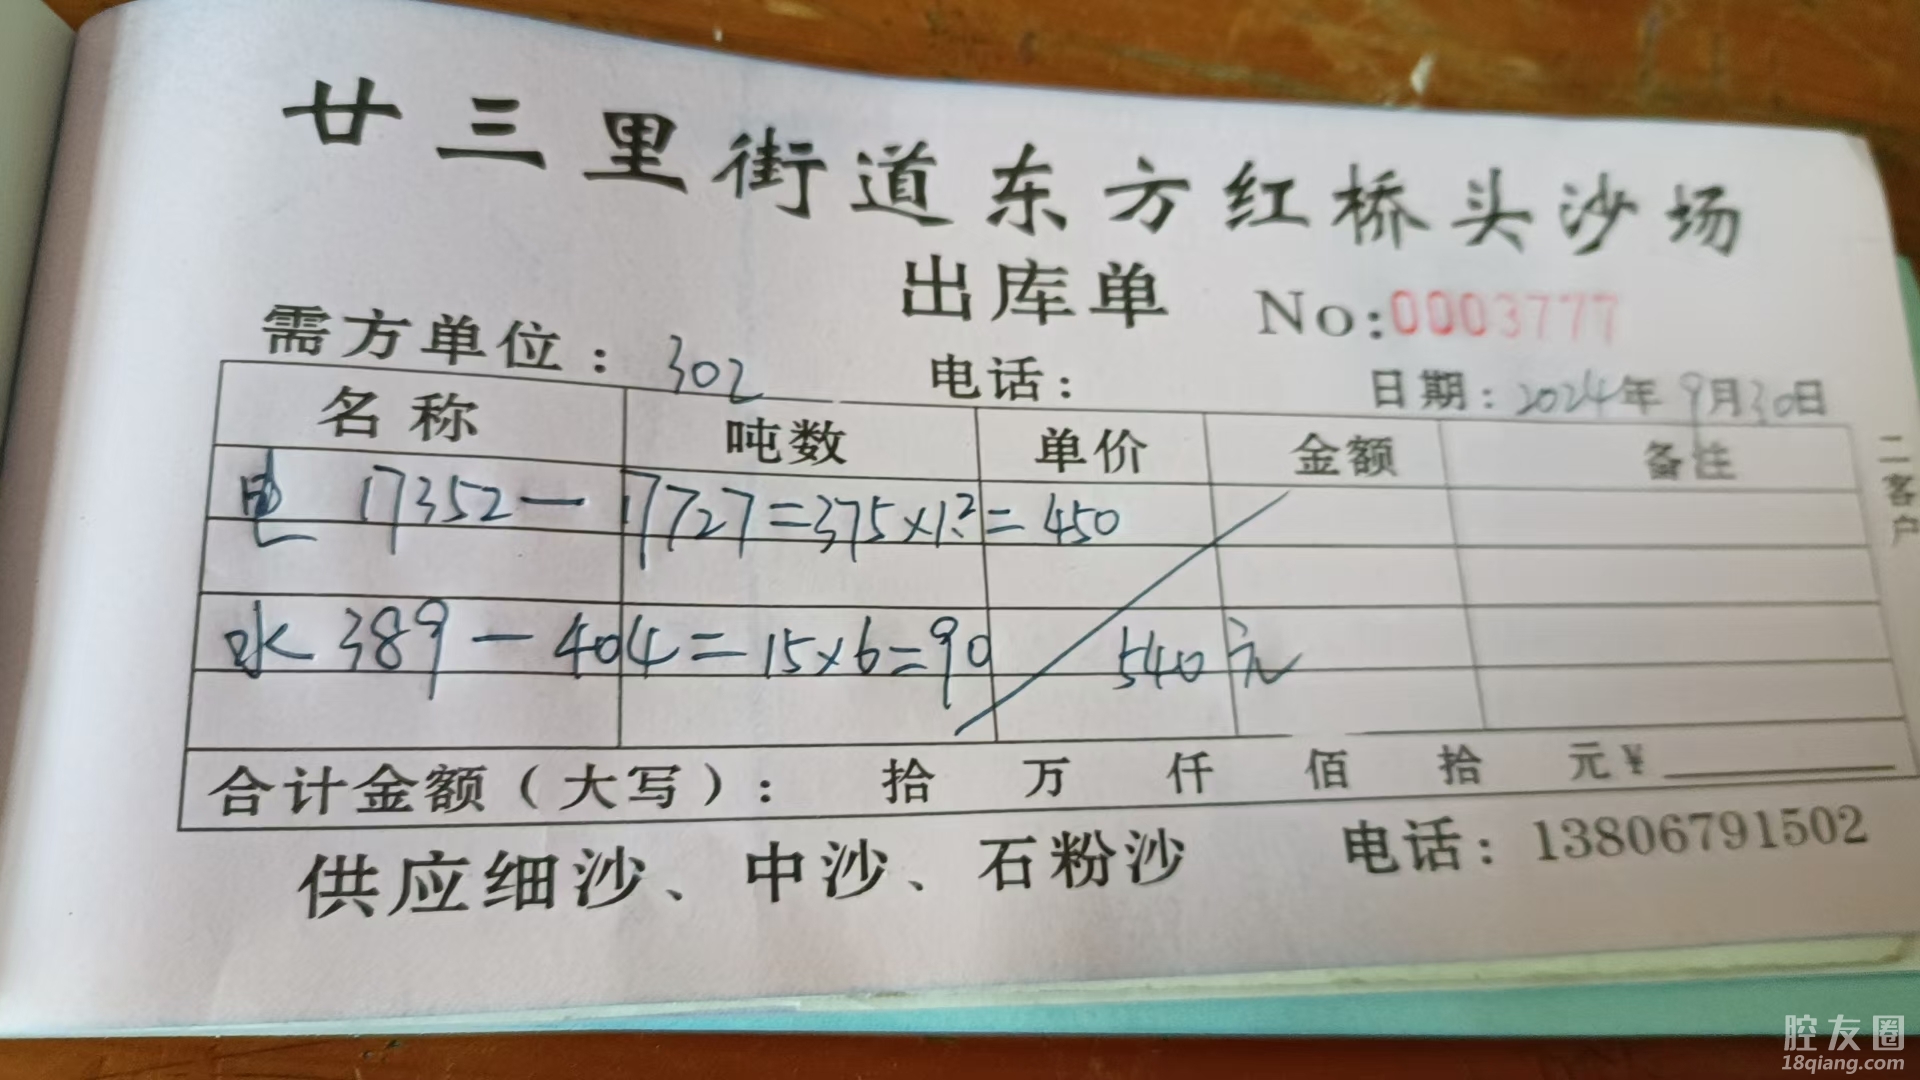 廿三里街道东方红桥头沙场
出库单 No:0003777
需方单位：302 电话： 日期：2024年9月30日
名称 吨数 单价 金额 备注
电 17352—17727=375×1.2=450
水 389—404=15×6=90 540元
合计金额（大写）： 拾 万 仟 佰 拾 元¥
供应细沙、中沙、石粉沙 电话：13806791502
二客户
腔友圈
18qiang.com